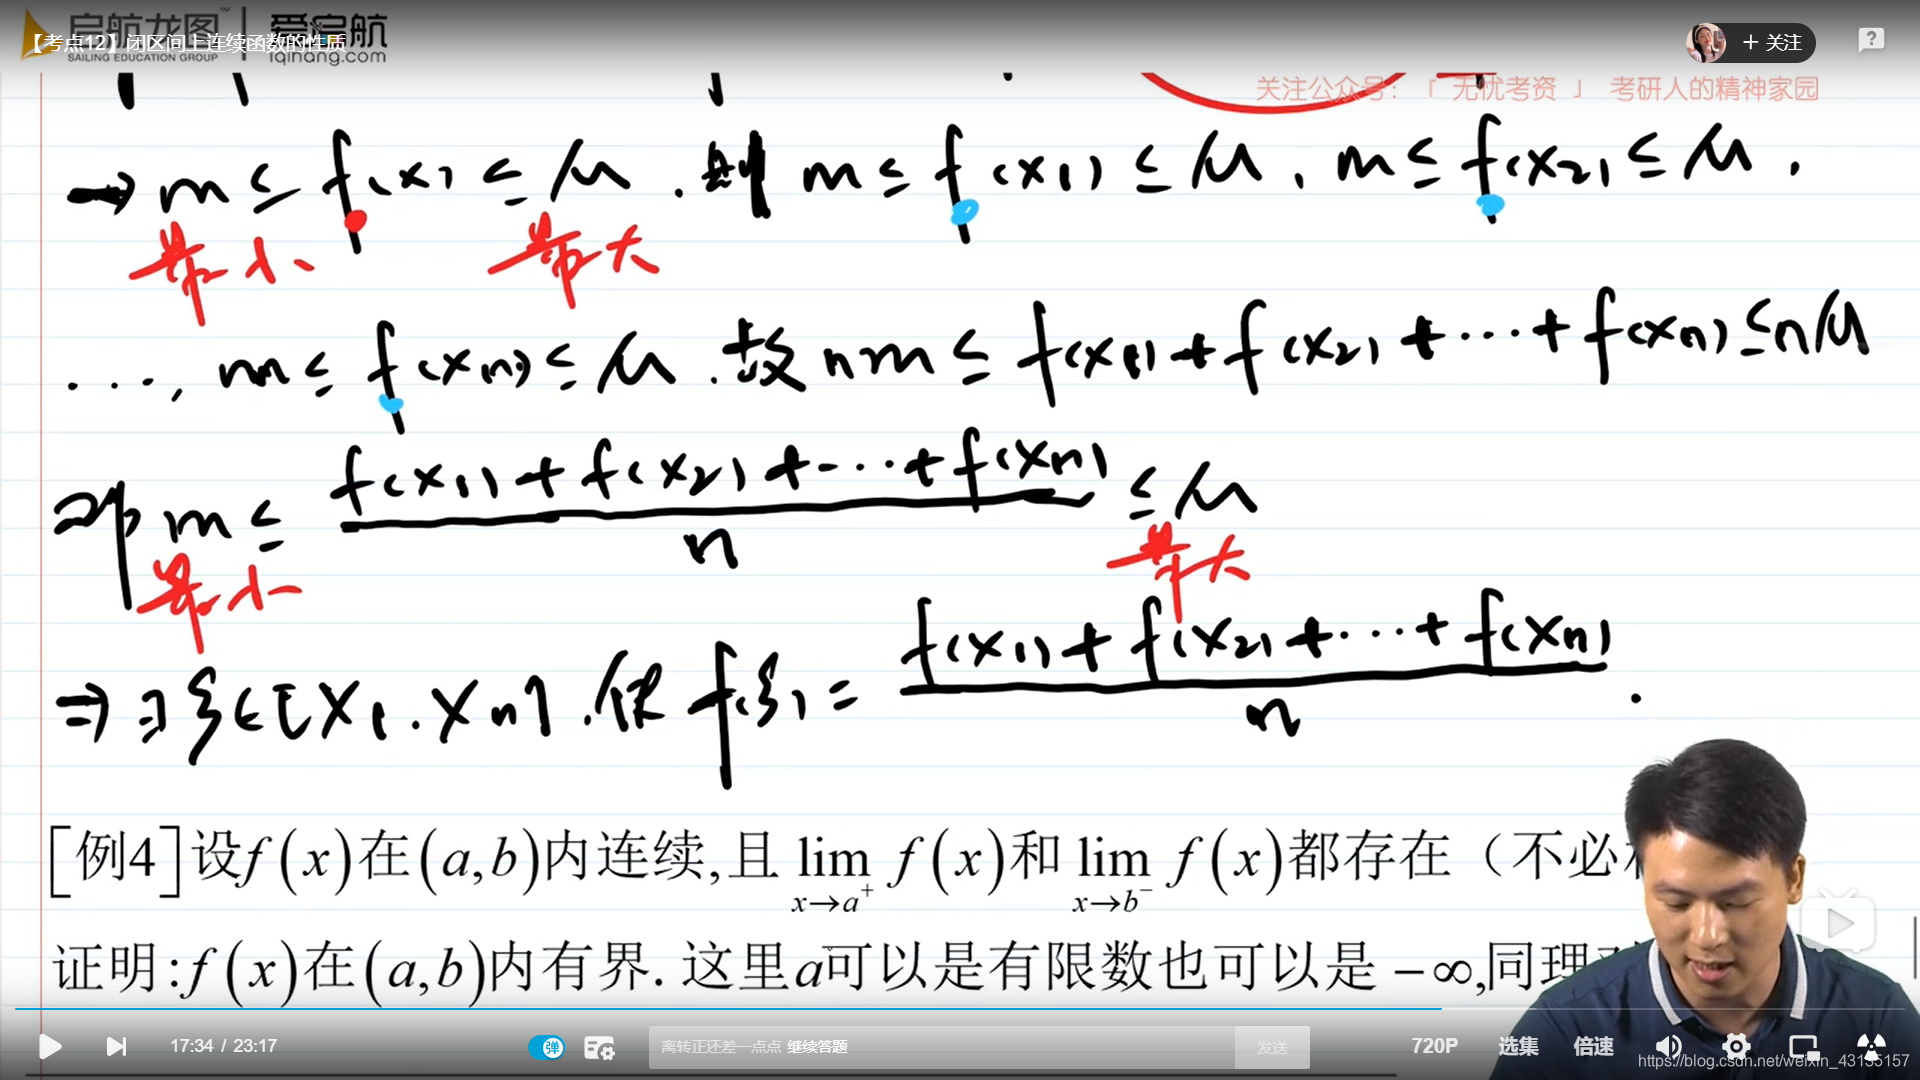 启航龙图™ 爱启航
【考点12】闭区间上连续函数的性质
SAILING EDUCATION GROUP iqihang.com
+ 关注
关注公众号：「 无忧考资 」 考研人的精神家园
→ m ≤ f(x) ≤ M . 则 m ≤ f(x₁) ≤ M , m ≤ f(x₂) ≤ M ,
最小 最大
..., m ≤ f(xₙ) ≤ M . 故 nm ≤ f(x₁) + f(x₂) + ... + f(xₙ) ≤ nM
即 m ≤ (f(x₁) + f(x₂) + ... + f(xₙ)) / n ≤ M
最小 最大
⇒ ∃ ξ ∈ [x₁, xₙ] , 使 f(ξ) = (f(x₁) + f(x₂) + ... + f(xₙ)) / n .
[例4]设f(x)在(a,b)内连续,且 lim x→a⁺ f(x)和 lim x→b⁻ f(x)都存在（不必
证明:f(x)在(a,b)内有界. 这里a可以是有限数也可以是 -∞,同理
17:34 / 23:17 弹 离转正还差一点点 继续答题 发送 720P 选集 倍速
https://blog.csdn.net/weixin_43135157